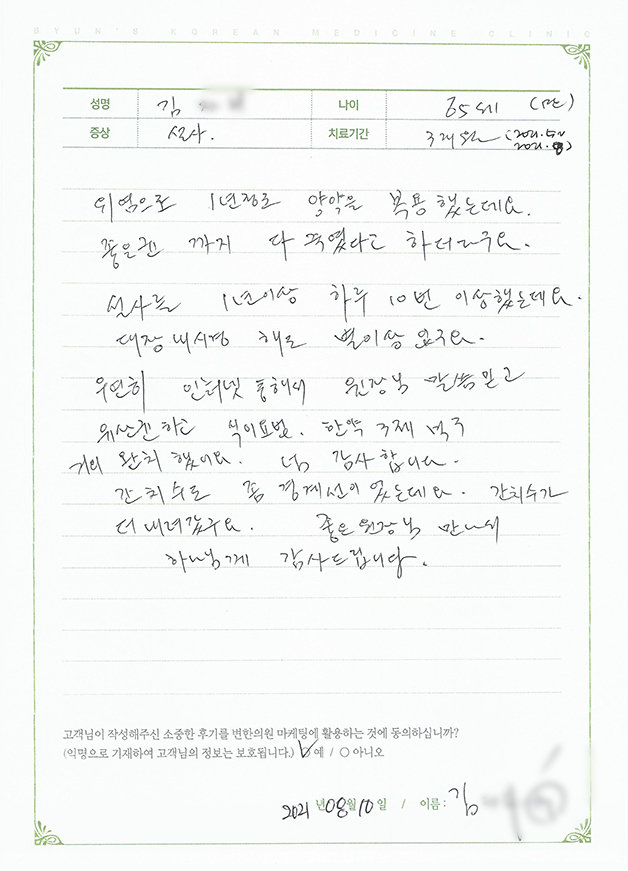 BYUN'S KOREAN MEDICINE CLINIC
성명 김 나이 65세 (만)
증상 설사. 치료기간 3개월 (2021.5~
2021.8)
위염으로 1년정도 양약을 복용했는데요.
좋은균 까지 다 죽였다고 하더라구요.
설사를 1년이상 하루 10번 이상했는데요.
대장내시경 해도 별이상 없구요.
우연히 인터넷 통해서 원장님 말씀믿고
유산균하고 식이요법. 한약 3제 먹구
거의 완치했어요. 넘 감사합니다.
간치수도 좀 경계선이었는데요. 간치수가
더 내려갔구요. 좋은 원장님 만나서
하나님께 감사드립니다.
고객님이 작성해주신 소중한 후기를 변한의원 마케팅에 활용하는 것에 동의하십니까?
(익명으로 기재하여 고객님의 정보는 보호됩니다.) ✓ 예 / ○ 아니오
2021 년 08 월 10 일 / 이름 : 김